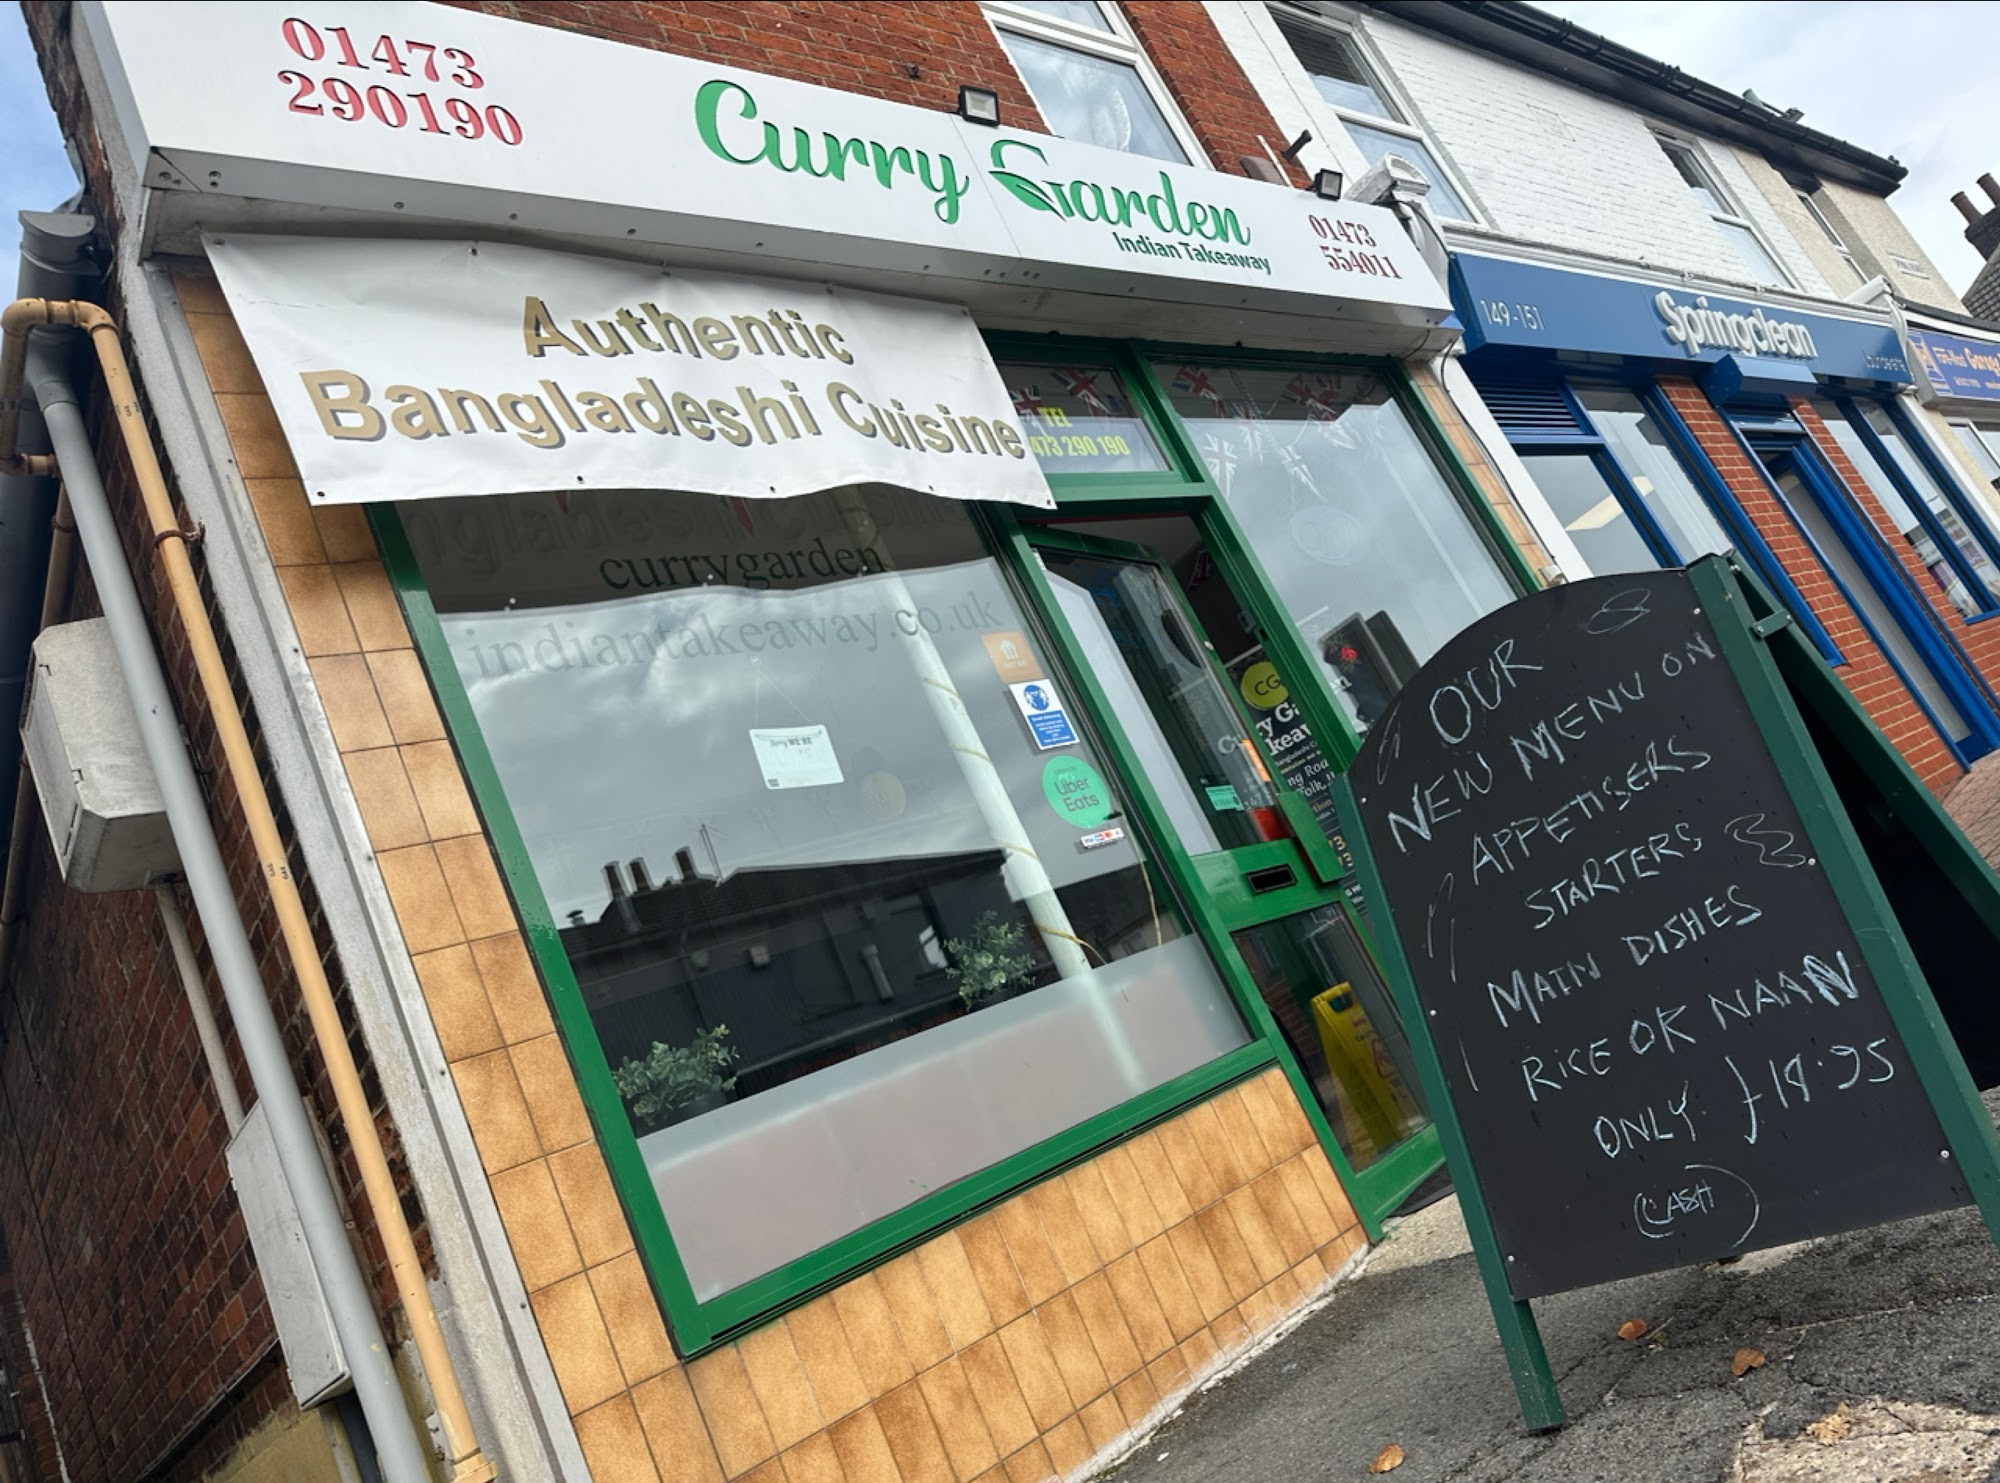 01473
290190
Curry Garden
Indian Takeaway
01473
554011
Authentic
Bangladeshi Cuisine
TEL
473 290 190
currygarden
indiantakeaway.co.uk
Sorry WE'RE
Uber
Eats
CG
149-151
Springclean
OUR
NEW MENU ON
APPETISERS
STARTERS
MAIN DISHES
RICE OR NAAN
ONLY £19.95
(CASH)